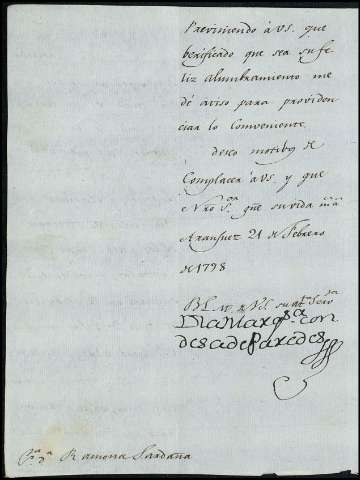 Previniendo à VS. que
berificado que sea su fe-
liz alumbramiento me
dé aviso para providen
ciar lo Conveniente.
deseo motibos de
Complacer à VS. y que
Nro Sr. gue su vida ms as
Aranjuez 21 de Febrero
de 1798
BLM de VS. su at.ta Serv.ra
La Marq.sa con
desa de Paredes
S.ra D.a Ramona Sardana